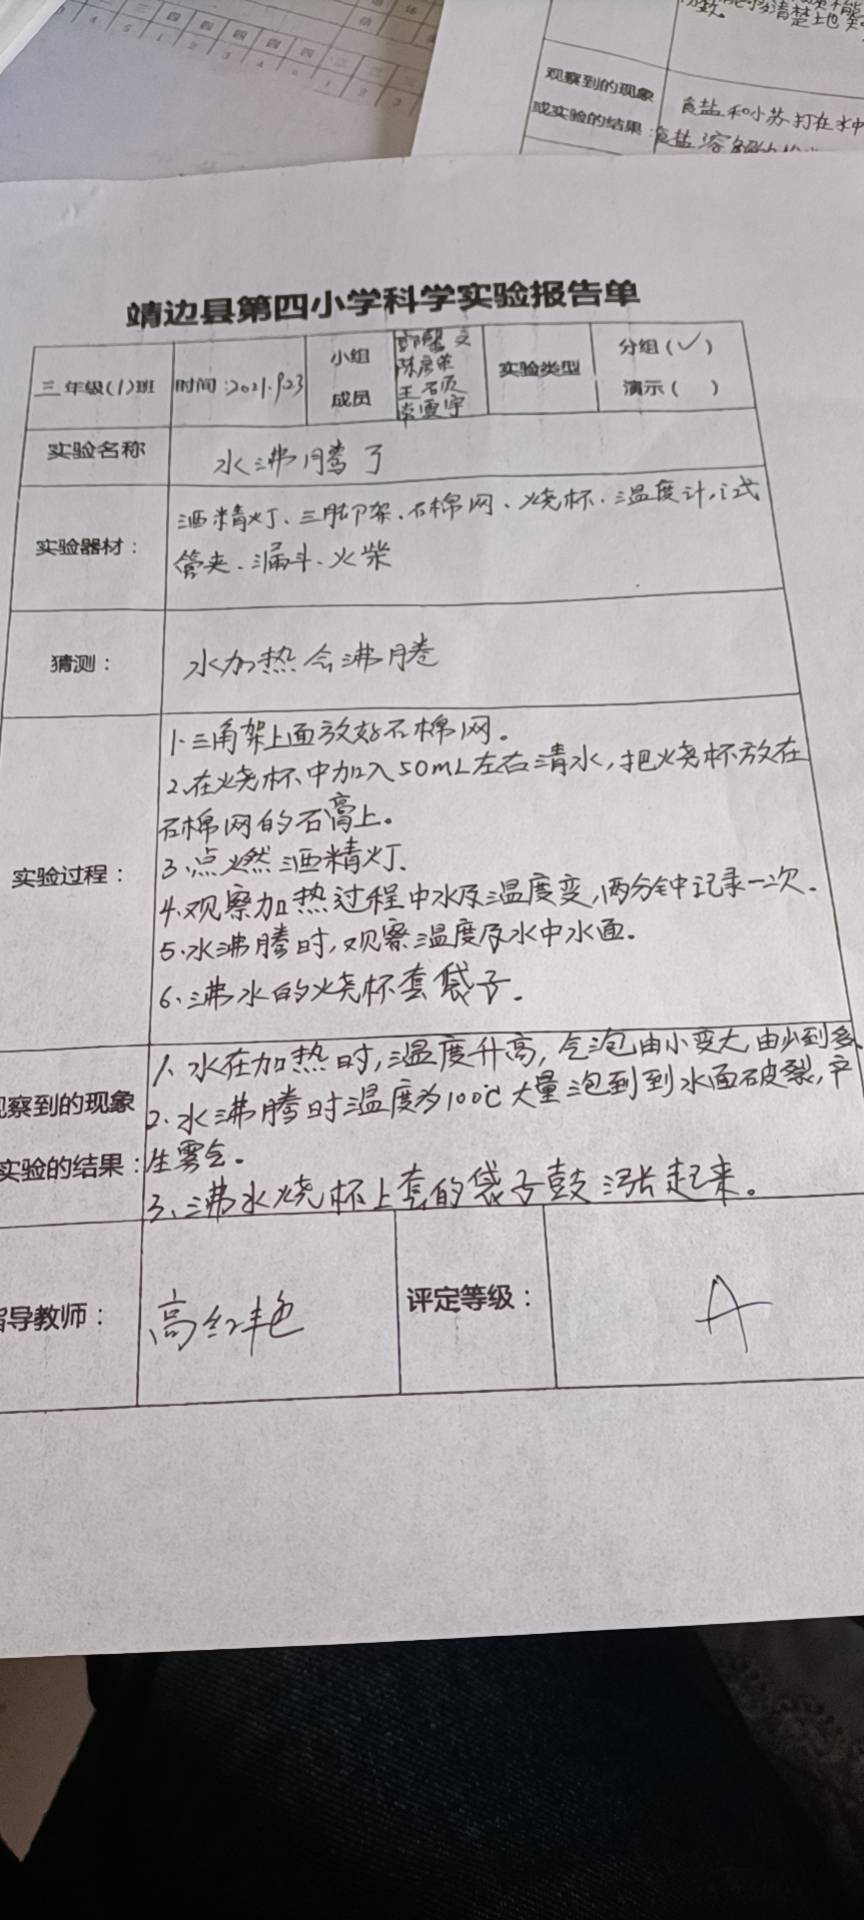 能够清楚地
观察到的现象
食盐和小苏打在水中
或实验的结果:
食盐溶解
靖边县第四小学科学实验报告单
三年级(1)班
时间:2021.9.23
小组
成员
实验类型
分组(✓)
演示( )
实验名称
水沸腾了
实验器材:
酒精灯、三脚架、石棉网、烧杯、温度计、试
管夹、漏斗、火柴
猜测:
水加热会沸腾
实验过程:
1.三角架上面放好石棉网。
2.在烧杯中加入50mL左右清水,把烧杯放在
石棉网的石膏上。
3.点燃酒精灯.
4.观察加热过程中水及温度变,两分钟记录一次.
5.水沸腾时,观察温度及水中水面.
6、沸水的烧杯套袋子.
观察到的现象
实验的结果:
1、水在加热时,温度升高,气泡由小变大,由少到多、
2.水沸腾时温度为100℃大量泡到到水面破裂,产
生雾气。
3、沸水烧杯上套的袋子鼓涨起来。
指导教师:
高红艳
评定等级:
A